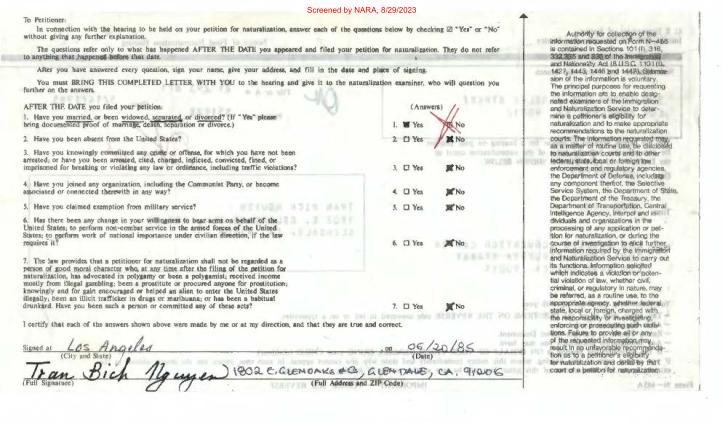 Screened by NARA, 8/29/2023
To Petitioner:
In connection with the hearing to be held on your petition for naturalization, answer each of the questions below by checking ☑ "Yes" or "No"
without giving any further explanation.
The questions refer only to what has happened AFTER THE DATE you appeared and filed your petition for naturalization. They do not refer
to anything that happened before that date.
After you have answered every question, sign your name, give your address, and fill in the date and place of signing.
You must BRING THIS COMPLETED LETTER, WITH YOU to the hearing and give it to the naturalization examiner, who will question you
further on the answers.
AFTER THE DATE you filed your petition:
(Answers)
1. Have you married, or been widowed, separated, or divorced? (If "Yes" please
bring documented proof of marriage, death, separation or divorce.)
1. Yes No
2. Have you been absent from the United States?
2. Yes No
3. Have you knowingly committed any crime or offense, for which you have not been
arrested; or have you been arrested, cited, charged, indicted, convicted, fined, or
imprisoned for breaking or violating any law or ordinance, including traffic violations?
3. Yes No
4. Have you joined any organization, including the Communist Party, or become
associated or connected therewith in any way?
4. Yes No
5. Have you claimed exemption from military service?
5. Yes No
6. Has there been any change in your willingness to bear arms on behalf of the
United States; to perform non-combat service in the armed forces of the United
States; to perform work of national importance under civilian direction, if the law
requires it?
6. Yes No
7. The law provides that a petitioner for naturalization shall not be regarded as a
person of good moral character who, at any time after the filing of the petition for
naturalization, has advocated in polygamy or been a polygamist; received income
mostly from illegal gambling; been a prostitute or procured anyone for prostitution;
knowingly and for gain encouraged or helped an alien to enter the United States
illegally; been an illicit trafficker in drugs or marihuana; or has been a habitual
drunkard. Have you been such a person or committed any of these acts?
7. Yes No
I certify that each of the answers shown above were made by me or at my direction, and that they are true and correct.
Signed at Los Angeles, on 05/20/85
(City and State) (Date)
Tran Bich Nguyen) 1802 E. GLENOAKS #G, GLENDALE, CA. 91206
(Full Signature) (Full Address and ZIP Code)
Authority for collection of the
information requested on Form N-445
is contained in Sections 101(f), 316,
332, 335 and 336 of the Immigration
and Nationality Act (8 U.S.C. 1101(f),
1427, 1443, 1446 and 1447). Submis-
sion of the information is voluntary.
The principal purposes for requesting
the information are to enable desig-
nated examiners of the Immigration
and Naturalization Service to deter-
mine a petitioner's eligibility for
naturalization and to make appropriate
recommendations to the naturalization
courts. The information requested may,
as a matter of routine use, be disclosed
to naturalization courts and to other
federal, state, local or foreign law
enforcement and regulatory agencies,
the Department of Defense, including
any component thereof, the Selective
Service System, the Department of State,
the Department of the Treasury, the
Department of Transportation, Central
Intelligence Agency, Interpol and in-
dividuals and organizations in the
processing of any application or peti-
tion for naturalization, or during the
course of investigation to elicit further
information required by the Immigration
and Naturalization Service to carry out
its functions. Information solicited
which indicates a violation or poten-
tial violation of law, whether civil,
criminal, or regulatory in nature, may
be referred, as a routine use, to the
appropriate agency, whether federal,
state, local or foreign, charged with
the responsibility of investigating,
enforcing or prosecuting such viola-
tions. Failure to provide all or any
of the requested information may
result in an unfavorable recommenda-
tion as to a petitioner's eligibility
for naturalization and denial by the
court of a petition for naturalization.